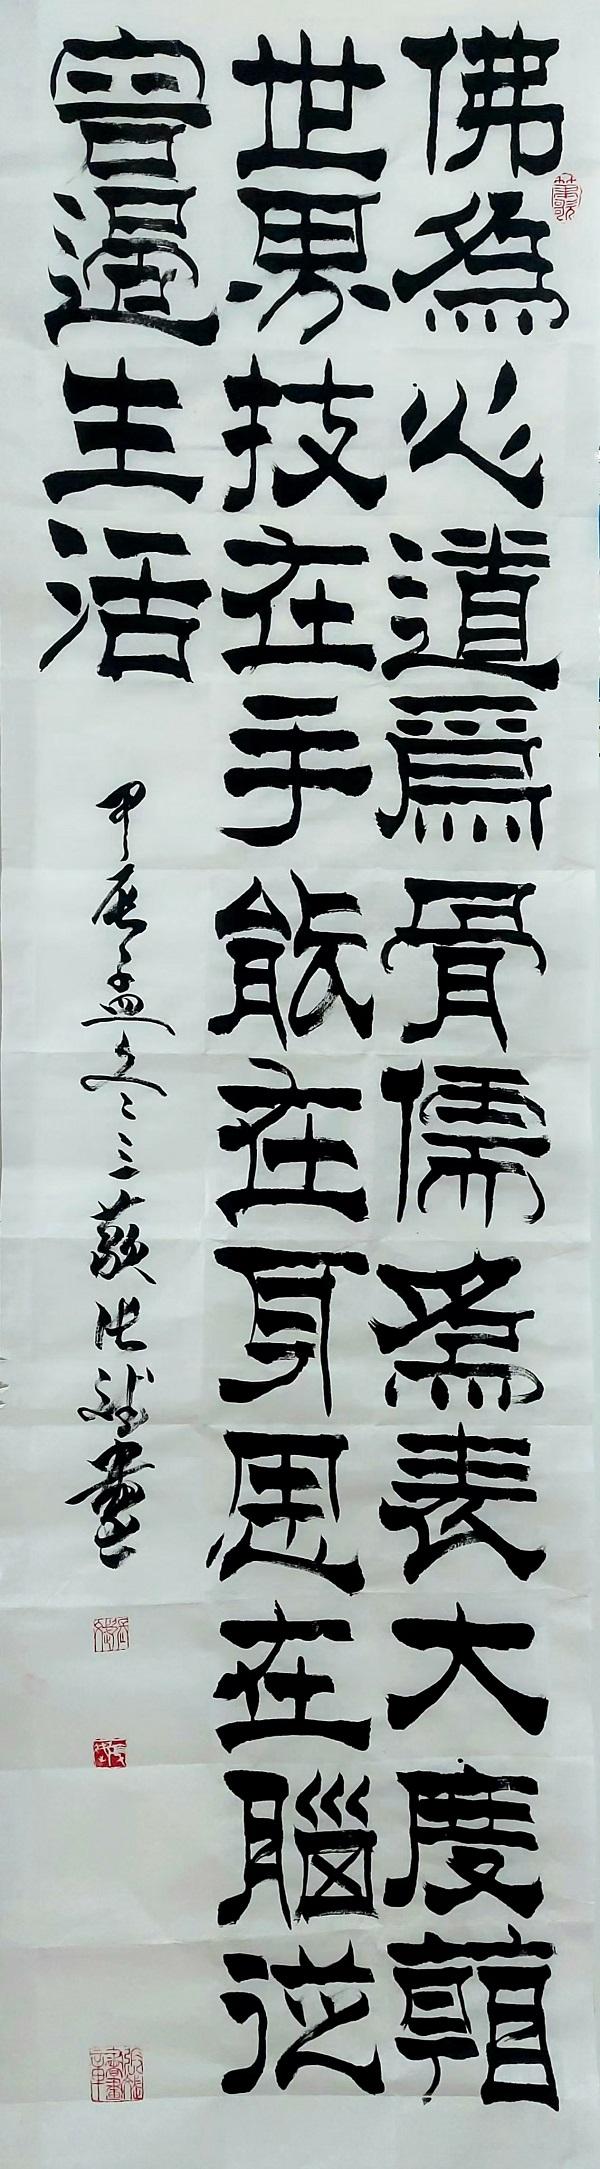 佛為心道為骨儒為表大度看
世界技在手能在身思在腦從
容過生活
甲辰孟冬 張斌書